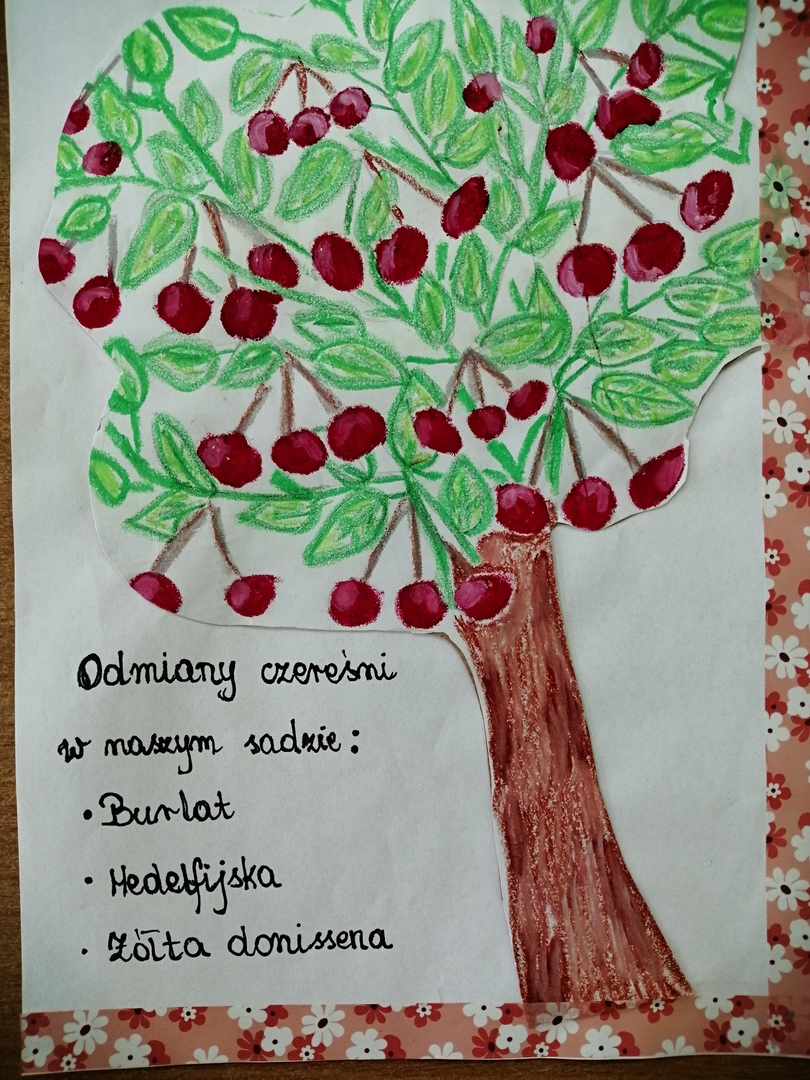 Odmiany czereśni
w naszym sadzie:
• Burlat
• Hedelfijska
• Żółta donissena